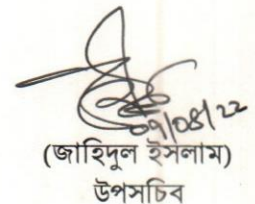 ০৭/০৪/২২
(জাহিদুল ইসলাম)
উপসচিব